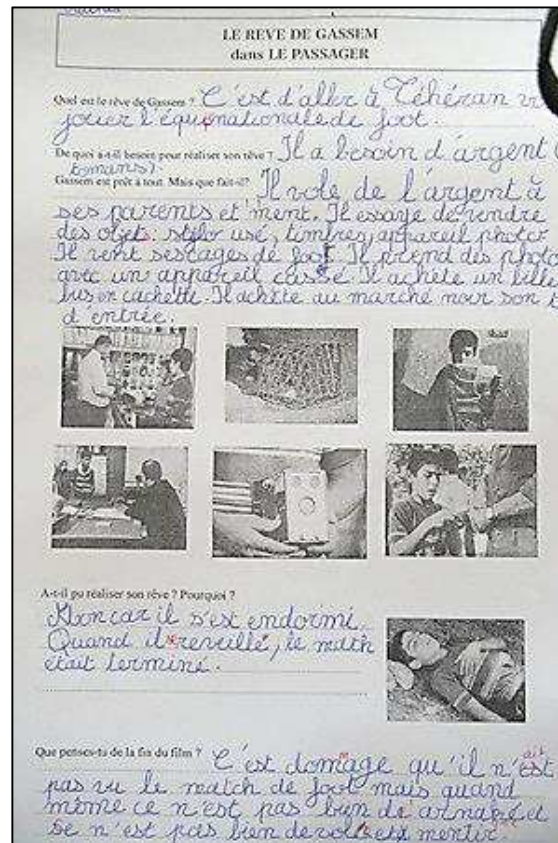 LE REVE DE GASSEM
dans LE PASSAGER
Quel est le rêve de Gassem ? C'est d'aller à Téhéran
jouer l'équnationale de foot.
De quoi a-t-il besoin pour réaliser son rêve ? Il a besoin d'argent (
tomans).
Gassem est prêt à tout. Mais que fait-il? Il vole de l'argent à
ses parents et ment. Il essaye de vendre
des objets : stylo usé, timbres, appareil photo.
Il vent ses cages de foot. Il prend des photo
avec un appareil cassé. Il achète un bille
bus en cachette. Il achète au marché noir son
d'entrée.
A-t-il pu réaliser son rêve ? Pourquoi ?
Non car il s'est endormi.
Quand il reveillé, le match
était terminé.
Que penses-tu de la fin du film ? C'est domage qu'il n'est ait
pas vu le match de foot mais quand
même ce n'est pas bien de arnaké et
se n'est pas bien de voler et mentir.